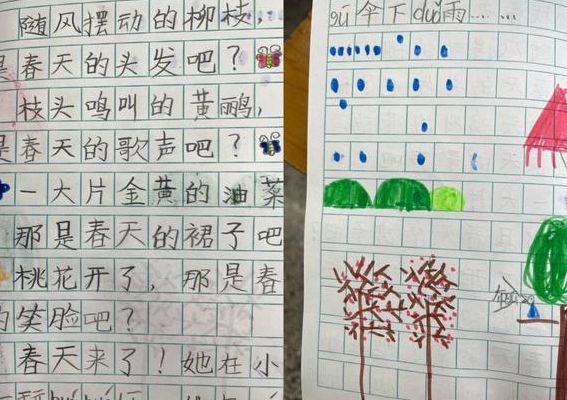 随风摆动的柳枝，
是春天的头发吧？
枝头鸣叫的黄鹂，
是春天的歌声吧？
一大片金黄的油菜
那是春天的裙子吧
桃花开了，那是春
的笑脸吧？
春天来了！她在小
伞下duǒ雨……